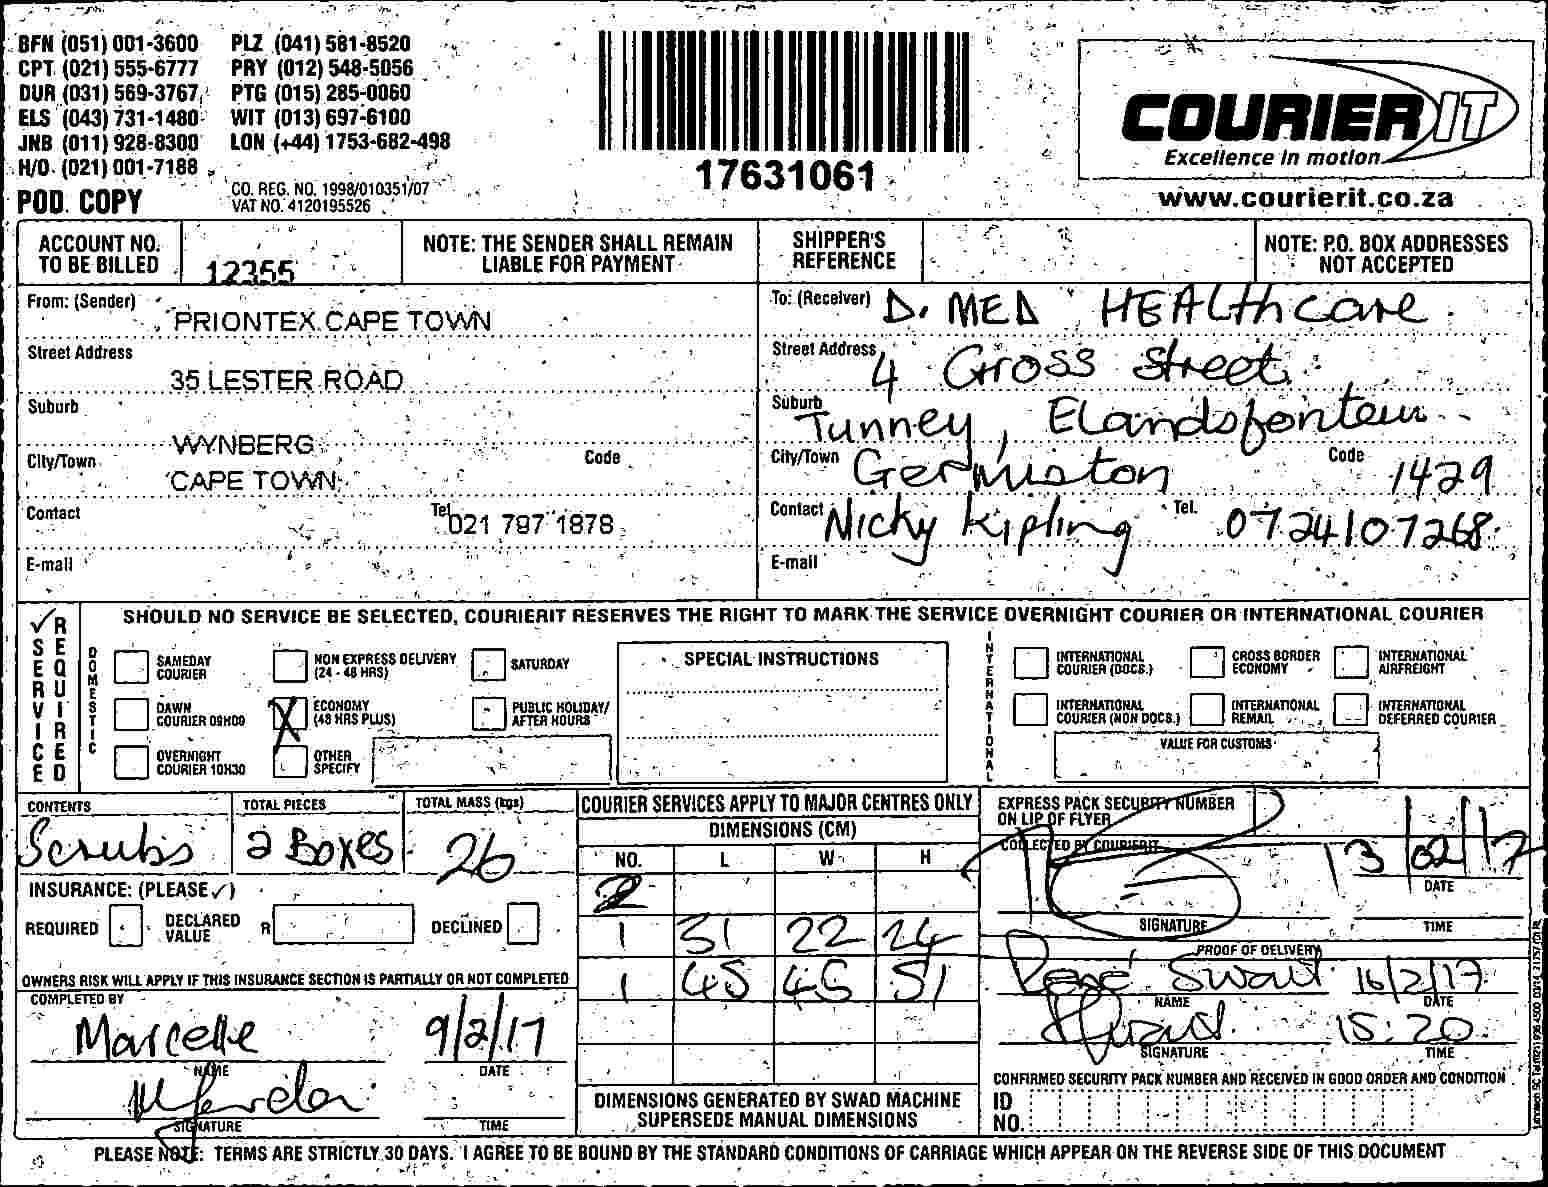 BFN (051) 001-3600 PLZ (041) 581-8520
CPT (021) 555-6777 PRY (012) 548-5056
DUR (031) 569-3767 PTG (015) 285-0060
ELS (043) 731-1480 WIT (013) 697-6100
JNB (011) 928-8300 LON (+44) 1753-682-498
H/O (021) 001-7188
POD COPY
CO. REG. NO. 1998/010351/07
VAT NO. 4120195526
17631061
COURIER IT
Excellence in motion
www.courierit.co.za
ACCOUNT NO. TO BE BILLED 12355
NOTE: THE SENDER SHALL REMAIN LIABLE FOR PAYMENT
SHIPPER'S REFERENCE
NOTE: P.O. BOX ADDRESSES NOT ACCEPTED
From: (Sender) PRIONTEX CAPE TOWN
Street Address 35 LESTER ROAD
Suburb WYNBERG
City/Town CAPE TOWN Code
Contact Tel 021 797 1878
E-mail
To: (Receiver) D. MED HEALthcare
Street Address 4 Gross street
Suburb Tunney, Elandsfontein
City/Town Germiston Code 1429
Contact Nicky Kipling Tel. 0724107268
E-mail
✓ SERVICE REQUIRED
SHOULD NO SERVICE BE SELECTED, COURIERIT RESERVES THE RIGHT TO MARK THE SERVICE OVERNIGHT COURIER OR INTERNATIONAL COURIER
DOMESTIC
SAMEDAY COURIER
NON EXPRESS DELIVERY (24 - 48 HRS)
SATURDAY
DAWN COURIER 09H00
X ECONOMY (48 HRS PLUS)
PUBLIC HOLIDAY/ AFTER HOURS
OVERNIGHT COURIER 10H30
OTHER SPECIFY
SPECIAL INSTRUCTIONS
INTERNATIONAL
INTERNATIONAL COURIER (DOCS.)
CROSS BORDER ECONOMY
INTERNATIONAL AIRFREIGHT
INTERNATIONAL COURIER (NON DOCS.)
INTERNATIONAL REMAIL
INTERNATIONAL DEFERRED COURIER
VALUE FOR CUSTOMS
CONTENTS Scrubs
TOTAL PIECES 2 Boxes
TOTAL MASS (kgs) 26
INSURANCE: (PLEASE ✓)
REQUIRED DECLARED VALUE R DECLINED
OWNERS RISK WILL APPLY IF THIS INSURANCE SECTION IS PARTIALLY OR NOT COMPLETED
COMPLETED BY
Marcelle 9/2/17
NAME DATE
SIGNATURE TIME
COURIER SERVICES APPLY TO MAJOR CENTRES ONLY
DIMENSIONS (CM)
NO. L W H
2
1 31 22 24
1 45 45 51
DIMENSIONS GENERATED BY SWAD MACHINE SUPERSEDE MANUAL DIMENSIONS
EXPRESS PACK SECURITY NUMBER ON LIP OF FLYER
COLLECTED BY COURIERIT
13/02/17
DATE
SIGNATURE TIME
PROOF OF DELIVERY
René Swart 16/2/17
NAME DATE
15:20
SIGNATURE TIME
CONFIRMED SECURITY PACK NUMBER AND RECEIVED IN GOOD ORDER AND CONDITION
ID NO.
PLEASE NOTE: TERMS ARE STRICTLY 30 DAYS. I AGREE TO BE BOUND BY THE STANDARD CONDITIONS OF CARRIAGE WHICH APPEAR ON THE REVERSE SIDE OF THIS DOCUMENT